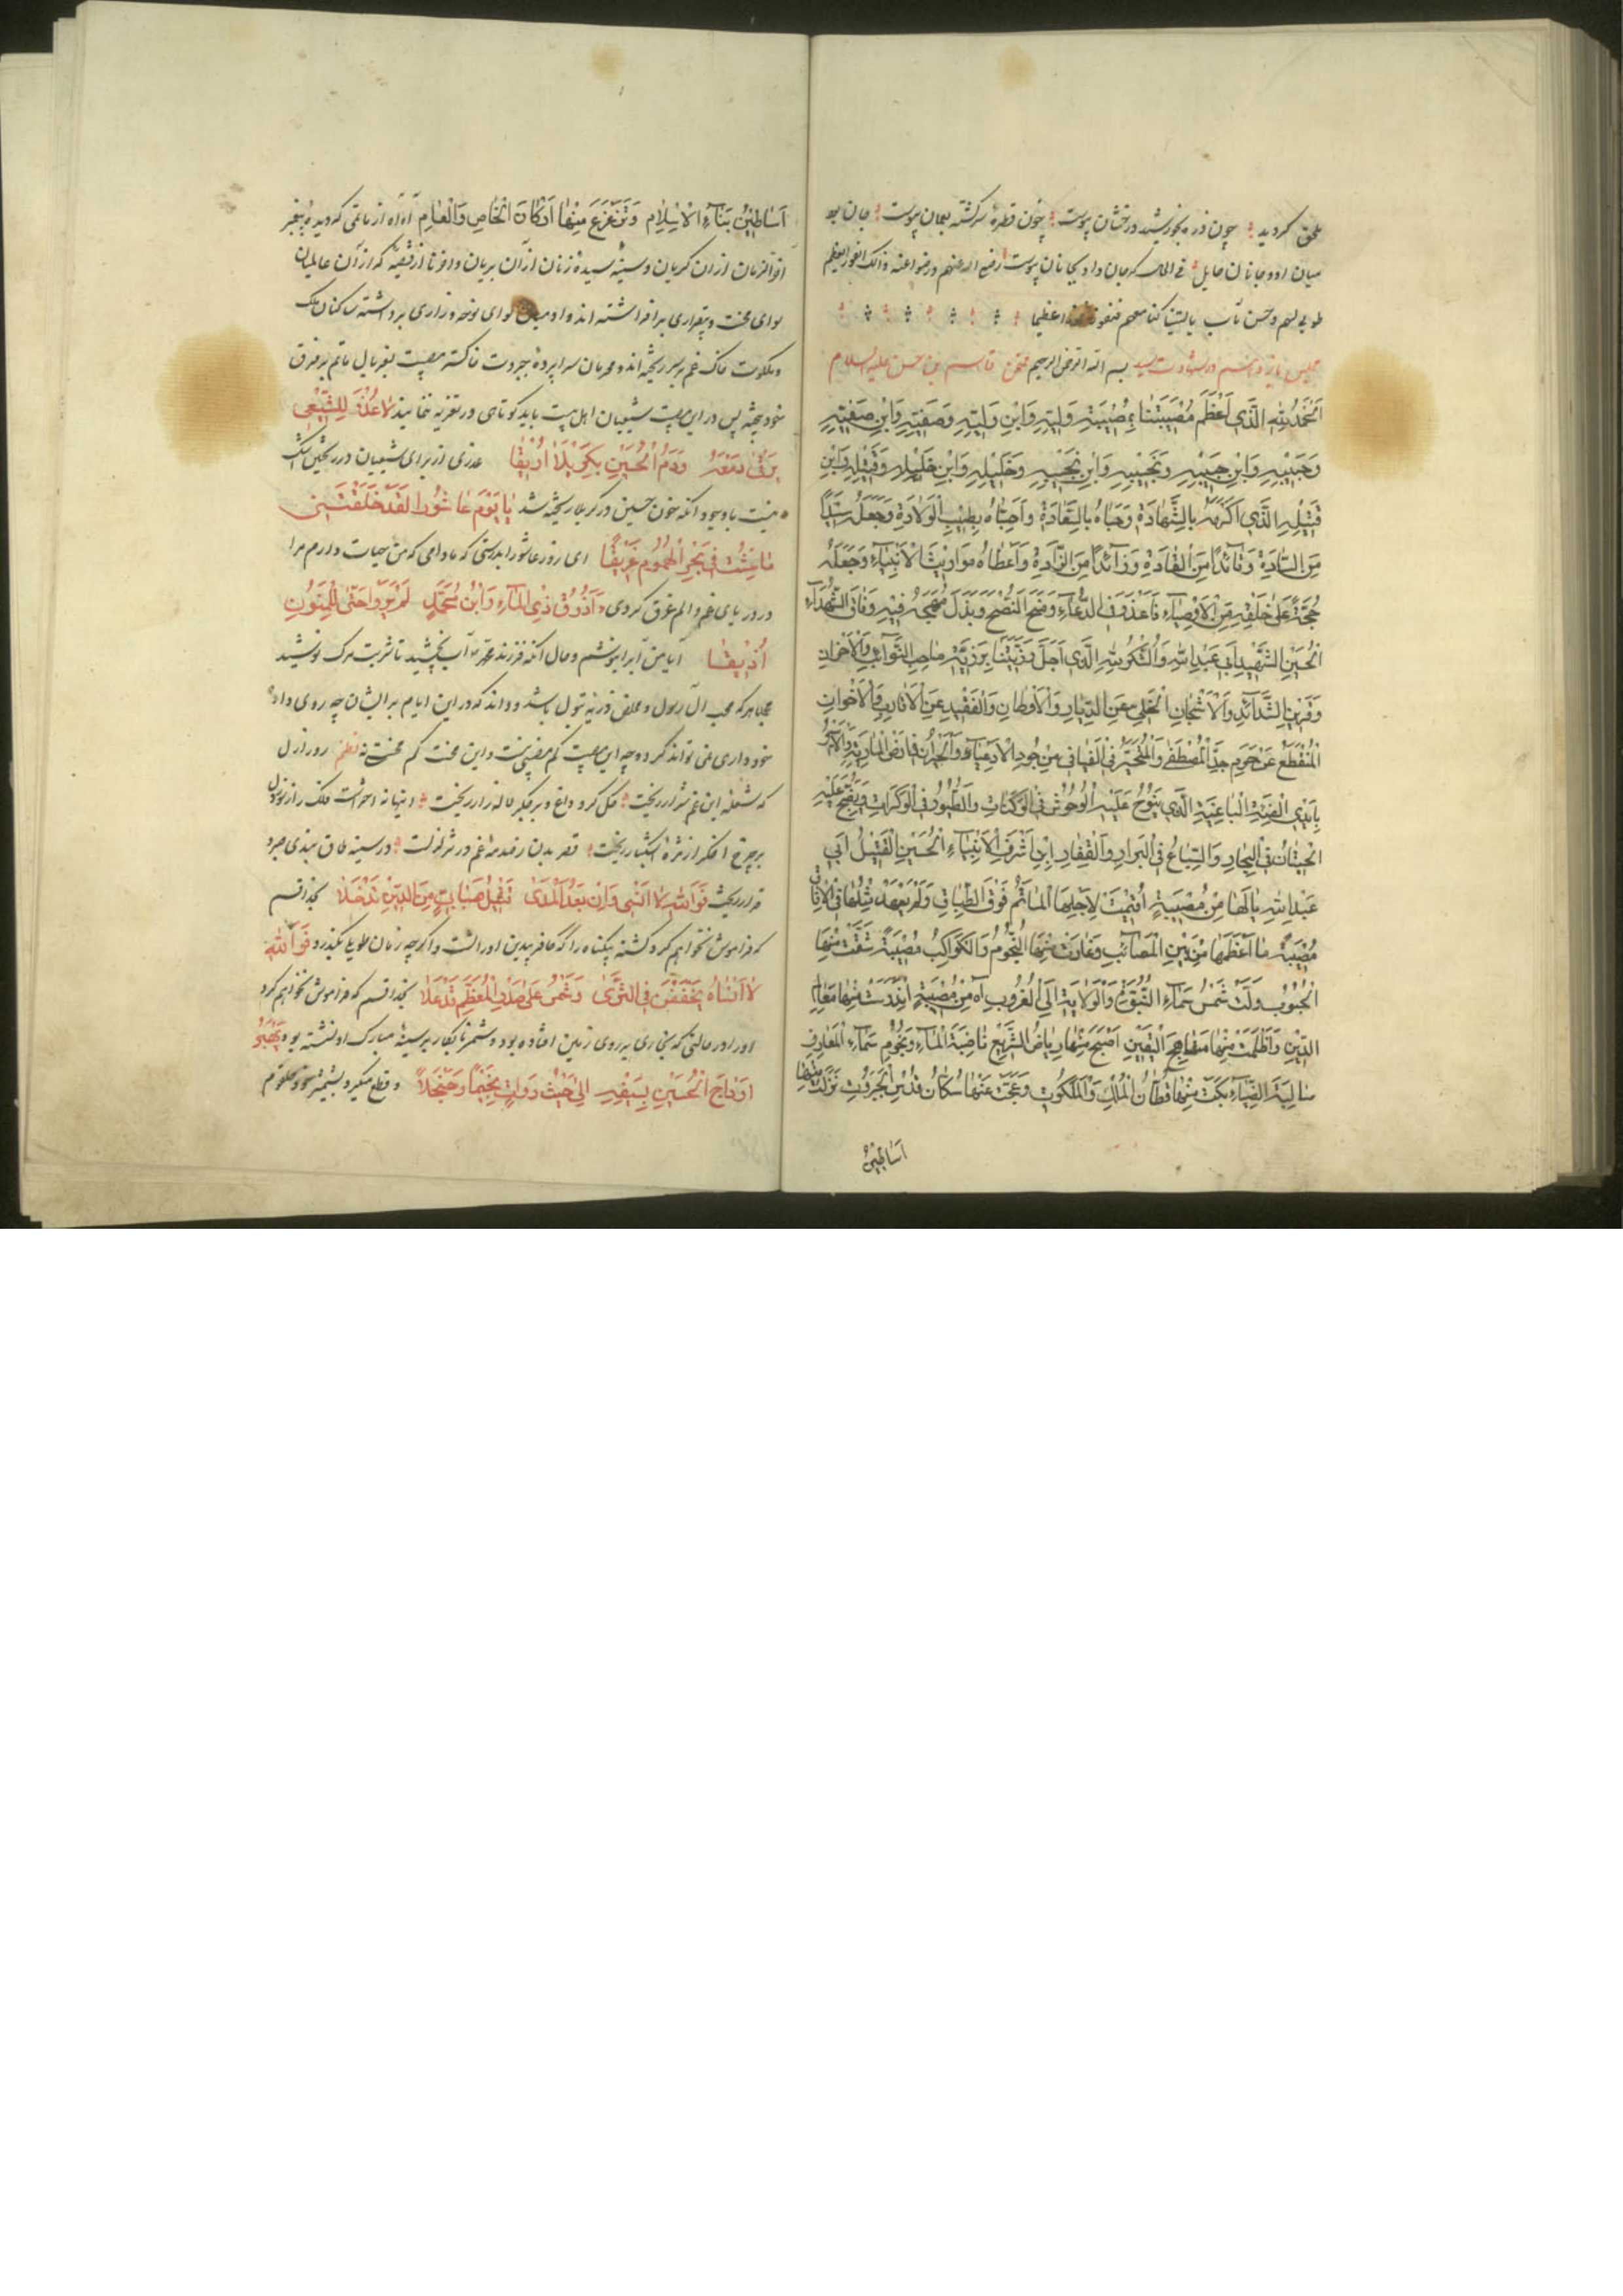 ملحق گردید چون ذره بخورشید درخشان پیوست چون قطرهٔ سرگشته بعمان پیوست جان بود
میان او و جانان حایل فی الحال که جان داد بجانان پیوست رضی الله عنهم و رضوا عنه و ذلک الفوز العظیم
طوبی لهم و حسن مآب یا لیتنا کنا معهم فنفوز فوزا عظیما
مجلس در شهادت بسم الله الرحمن الرحیم قاسم بن حسن علیه السلام
اَلْحَمْدُ لِلّٰهِ الَّذی اَعْظَمَ مُصیبَتَنا بِمُصیبَةِ وَلِیِّهِ وَابْنِ وَلِیِّهِ وَصَفِیِّهِ وَابْنِ صَفِیِّهِ
وَحَبیبِهِ وَابْنِ حَبیبِهِ وَنَجیبِهِ وَابْنِ نَجیبِهِ وَخَلیلِهِ وَابْنِ خَلیلِهِ وَقَتیلِهِ وَابْنِ
قَتیلِهِ الَّذی اَکْرَمَهُ بِالشَّهادَةِ وَحَباهُ بِالسَّعادَةِ وَاجْتَباهُ بِطیبِ الْوِلادَةِ وَجَعَلَهُ سَیِّداً
مِنَ السّادَةِ وَقآئِداً مِنَ الْقادَةِ وَذآئِداً مِنَ الذّادَةِ وَاَعْطاهُ مَواریثَ الْاَنْبِیآءِ وَجَعَلَهُ
حُجَّةً عَلیٰ خَلْقِهِ مِنَ الْاَوْصِیآءِ فَاَعْذَرَ فِی الدُّعآءِ وَمَنَحَ النُّصْحَ وَبَذَلَ مُهْجَتَهُ فیهِ الشُّهَدآءِ
الْحُسَیْنِ الشَّهیدِ اَبی عَبْدِ اللّٰهِ وَالشُّکْرُ لِلّٰهِ الَّذی اَجَلَّ رَزِیَّتَنا بِرَزِیَّةِ صاحِبِ النَّوآئِبِ وَالْاَحْزانِ
وَقَرینِ الشَّدآئِدِ وَالْاَشْجانِ الْخَلِیِّ عَنِ الدِّیارِ وَالْاَوْطانِ وَالْفَقیدِ عَنِ الْاَقارِبِ وَالْاَخْوانِ
الْمُنْقَطِعِ عَنْ حَرَمِ جَدِّهِ الْمُصْطَفیٰ وَالْمُتَحَیِّرِ فِی الْفَیافی مِنْ
بِاَیْدی الْفِئَةِ الْباغِیَةِ الَّذی یَنُوحُ عَلَیْهِ الْوُحُوشُ فِی وَالطُّیُورُ فِی الْوَکَراتِ وَیَضِجُّ عَلَیْهِ
الْحیتانُ فِی الْبِحارِ وَالسِّباعُ فِی الْبَراری وَالْقِفارِ اِبْنِ اَشْرَفِ الْاَنْبِیآءِ الْحُسَیْنِ الْقَتیلِ اَبی
عَبْدِ اللّٰهِ یا لَها مِنْ مُصیبَةٍ اُقیمَتْ لِاَجْلِهَا الْمَاٰتِمُ فَوْقَ الطِّباقِ وَلَمْ یُعْهَدْ مِثْلُها فِی الْاٰفاقِ
مُصیبَةٌ ما اَعْظَمَها مِنْ بَیْنِ الْمَصآئِبِ وَغارَتْ مِنْهَا النُّجُومُ وَالْکَواکِبُ مُصیبَةٌ شُقَّتْ مِنْهَا
الْجُیُوبُ وَدَلَّتْ شَمْسُ سَمآءِ النُّبُوَّةِ وَالْوِلایَةِ اِلَی الْغُرُوبِ اٰهِ مِنْ مُصیبَةٍ اِنْدَرَسَتْ مِنْها مَعالِمُ
الدّینِ وَاَظْلَمَتْ مِنْها الْیَقینِ اَصْبَحَ مِنْها رِیاضُ الشَّرْعِ ناضِبَةَ الْمآءِ وَنُجُومُ سَمآءِ الْمَعارِفِ
سالِبَةَ الضِّیآءِ بَکَتْ مِنْها قُطّانُ الْمُلْکِ وَالْمَلَکُوتِ وَعَجَّتْ عَنْها سُکّانُ قُدْسِ الْجَبَرُوتِ تَزَلْزَلَتْ مِنْها
اَساطینُ
اَساطینُ بَنآءِ الْاِسْلامِ وَتَزَعْزَعَ مِنْها اَرْکانَ الْخاصِ وَالْعامِ آه آه از ماتمی که دیدهٔ پیغمبر
آخر الزمان از آن گریان و سینهٔ سیدهٔ زنان از آن بریان وا خرنا از قضیهٔ که از آن عالمیان
لوای محنت و بیقراری برافراشته‌اند و آدمیان لوای نوحه و زاری برداشته ساکنان ملک
و ملکوت خاک غم بر سر ریخته‌اند و محرمان سراپردهٔ جبروت خاکستر مصیبت بغربال ماتم بر فرق
خود بیخته پس در این مصیبت شیعیان اهل بیت باید کوتاهی در تعزیه ننمایند لا عُذْرَ لِلشّیعی
یَرْقیٰ دَمْعُهُ وَدَمُ الْحُسَیْنِ بِکَرْبَلا اُریقا عذری از برای شیعیان در ریختن اشک
نیست با وجود آنکه خون حسین در کربلا ریخته شد یا یَوْمَ عاشُورا لَقَدْ خَلَّفْتَنی
ما عِشْتُ فی بَحْرِ الْهُمُومِ غَریقاً ای روز عاشورا بدرستی که مادامی که من حیات دارم مرا
در دریای غم و الم غرق کردی وَاَذُوقُ رِیَّ الْمآءِ وَابْنُ مُحَمَّدٍ لَمْ یُرْوَ حَتّیٰ لِلْمَنُونِ
اُذیقا آیا من آب را بنوشم و حال آنکه فرزند محمد آب نچشید تا شربت مرگ نوشید
عجبا هر که محب آل رسول و مخلص ذریهٔ بتول باشد و داند که در این ایام بر ایشان چه روی داده
خودداری می تواند کرد و چه این مصیبت کم مصیبتی نیست و این محنت کم محنتی نه نظم روز ازل
که شعلهٔ این غم شرار ریخت گل کرد داغ و بر جگر لاله زار ریخت
بر چرخ اخگر از مژهٔ اشکبار ریخت قصر بدن غم در تزلزلست در سینه طاق بندی صبر و
قرار ریخت فَوَاللّٰهِ لا اَنْسیٰ وَاِنْ بَعُدَ الْمَدیٰ قَتیلُ مِنَ الدّینِ بخدا قسم
که فراموش نخواهم کرد کشتهٔ بیگناه را که کافر بیدین او را کشت و اگر چه زمان طویل بگذرد فَوَاللّٰهِ
لا اَنْساهُ فِی الثَّریٰ وَشِمْرٌ عَلیٰ صَدْرِ الْمُعَظَّمِ قَدْ عَلا بخدا قسم که فراموش نخواهم کرد
او را در حالتی که بخواری بر روی زمین افتاده بود و شمر نابکار بر سینهٔ مبارک او نشسته بود
اَوْداجَ الْحُسَیْنِ بِسَیْفِهِ و قطع میکرد بشمشیر خود حلقوم